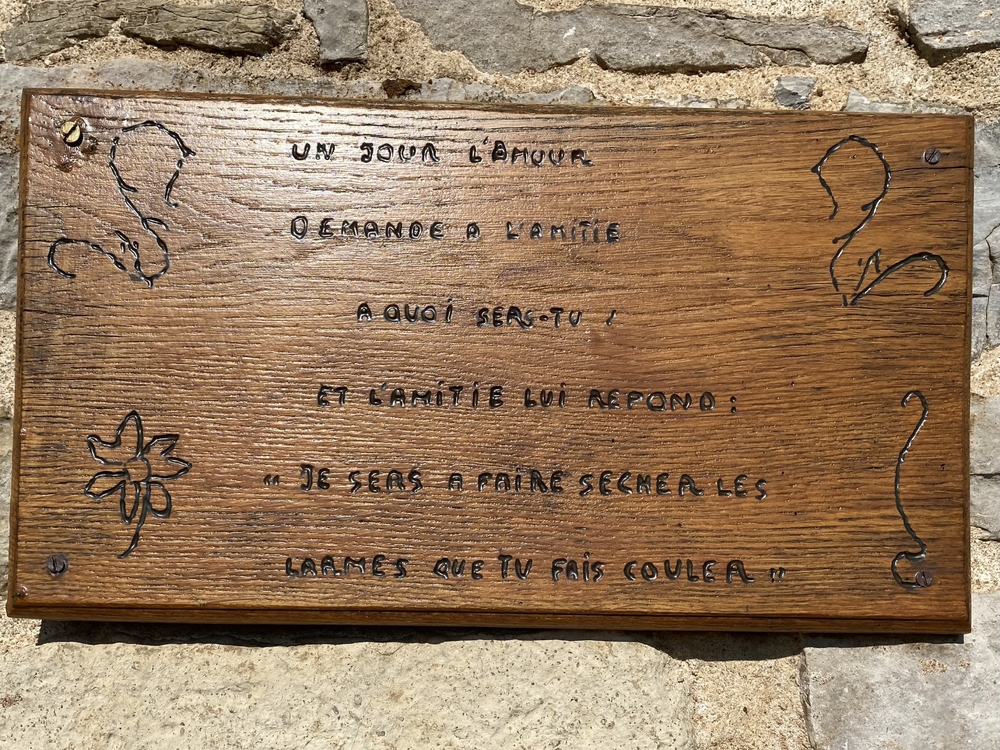 UN JOUR L'AMOUR
DEMANDE A L'AMITIE
A QUOI SERS-TU !
ET L'AMITIE LUI REPOND :
" JE SERS A FAIRE SECHER LES
LARMES QUE TU FAIS COULER "